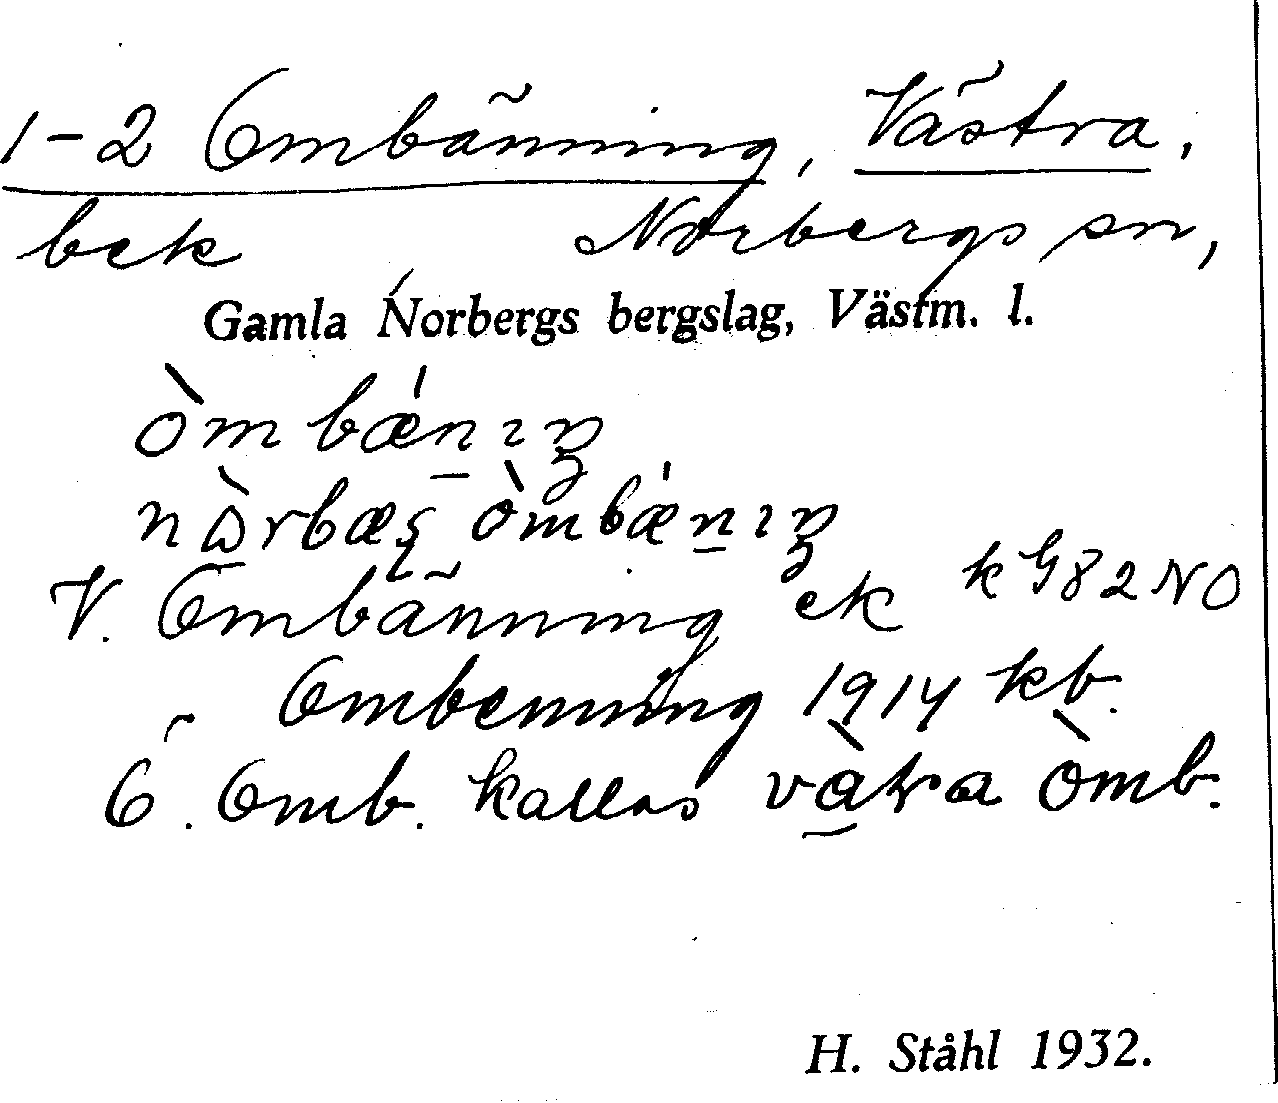 1-2 Ombänning, Västra,
bek Norbergs sn,
Gamla Norbergs bergslag, Västm. l.
òmbǽnıŋ
òmbǽnıŋ
V. Ombänning ek k G82 NO
Ombenning 1914 kb.
Ö. Omb. kallas òmb.
H. Ståhl 1932.